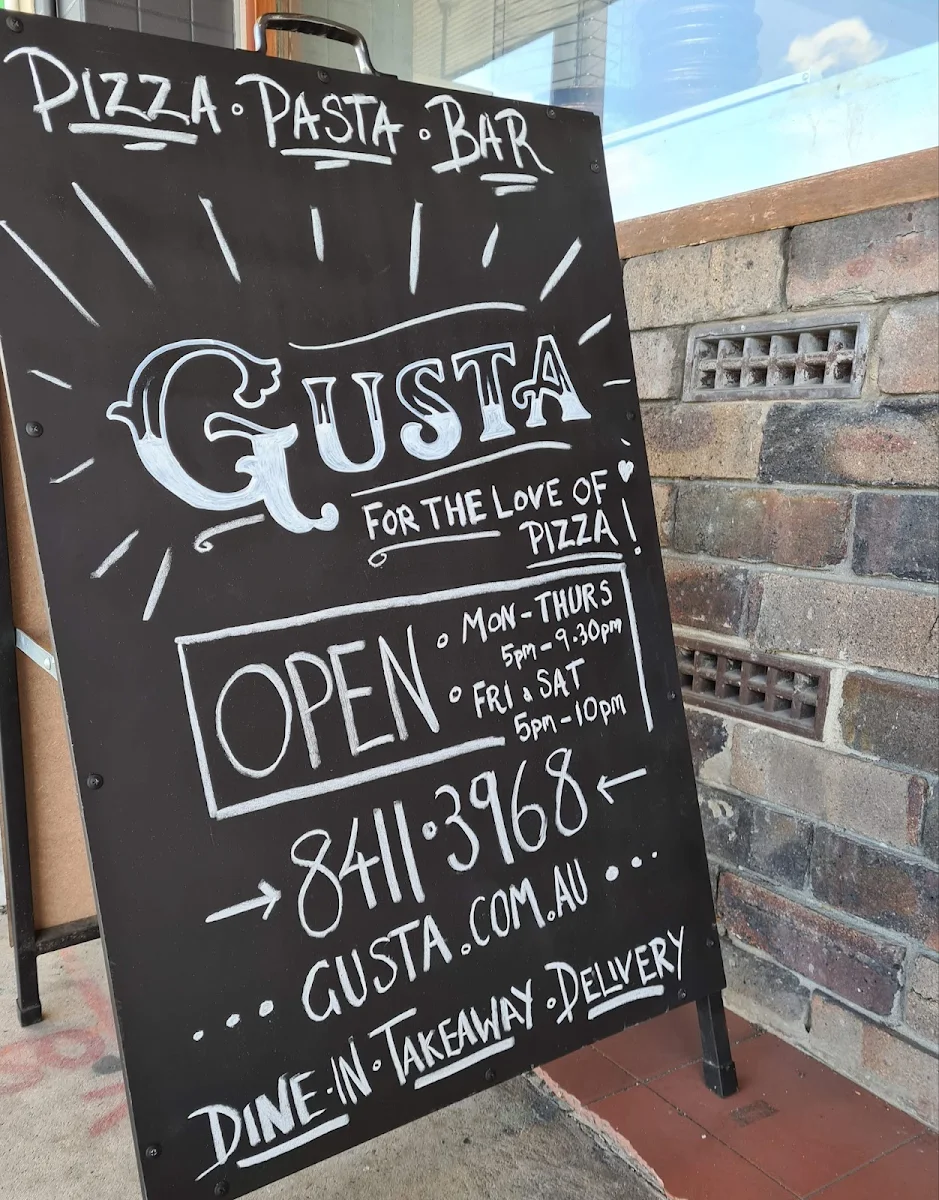 PIZZA • PASTA • BAR
GUSTA
FOR THE LOVE OF
PIZZA!
OPEN
• MON-THURS
5pm-9.30pm
• FRI & SAT
5pm-10pm
→ 8411•3968 ←
... GUSTA.COM.AU ...
DINE•IN • TAKEAWAY • DELIVERY